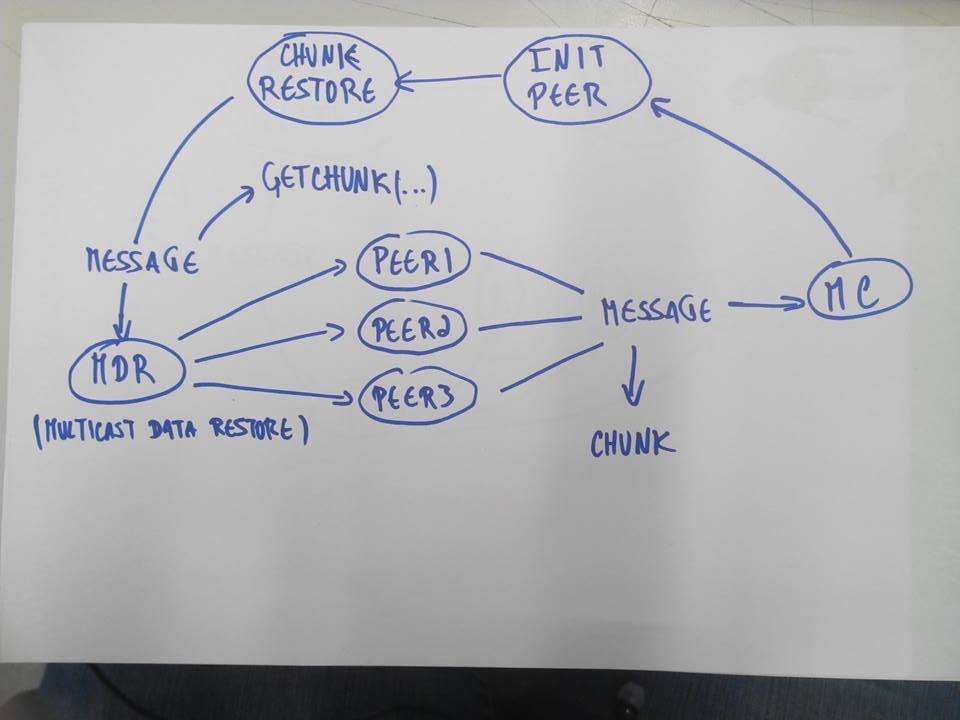 CHUNK
RESTORE
INIT
PEER
GETCHUNK(...)
MESSAGE
PEER1
PEER2
PEER3
MESSAGE
MC
MDR
(MULTICAST DATA RESTORE)
CHUNK